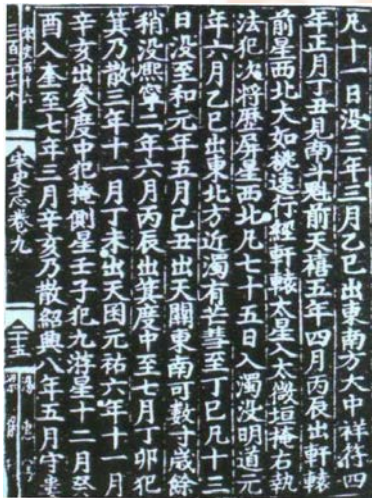 凡十一日沒三年三月乙巳出東南方大中祥符四
年正月丁丑見南斗魁前天禧五年四月丙辰出軒轅
前星西北大如桃速行經軒轅太星入太微垣掩右執
法犯次將歷屏星西北凡七十五日入濁沒明道元
年六月乙巳出東北方近濁有芒彗至丁巳凡十三
日沒至和元年五月己丑出天關東南可數寸歲餘
稍沒熙寧二年六月丙辰出箕度中至七月丁卯犯
箕乃散三年十一月丁未出天囷元祐六年十一月
辛亥出參度中犯掩側星壬子犯九游星十二月癸
酉入奎至七年三月辛亥乃散紹興八年五月守婁
宋史志卷九
二十五